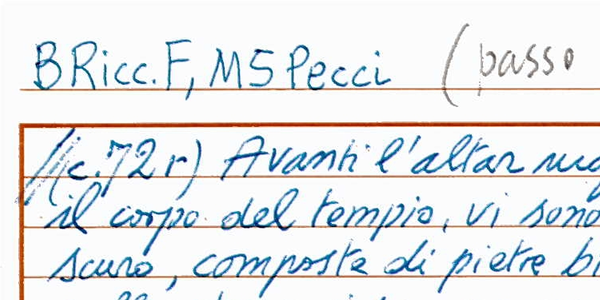 BRicc.F, MS Pecci (passo
(c.72r) Avanti l'altar
il corpo del tempio, vi sono
scuro, composte di pietre bi